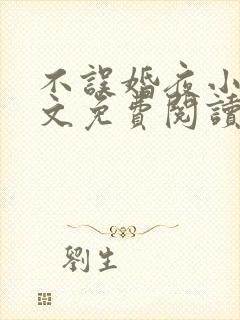 不誤婚夜小
文免費閱讀
劉生